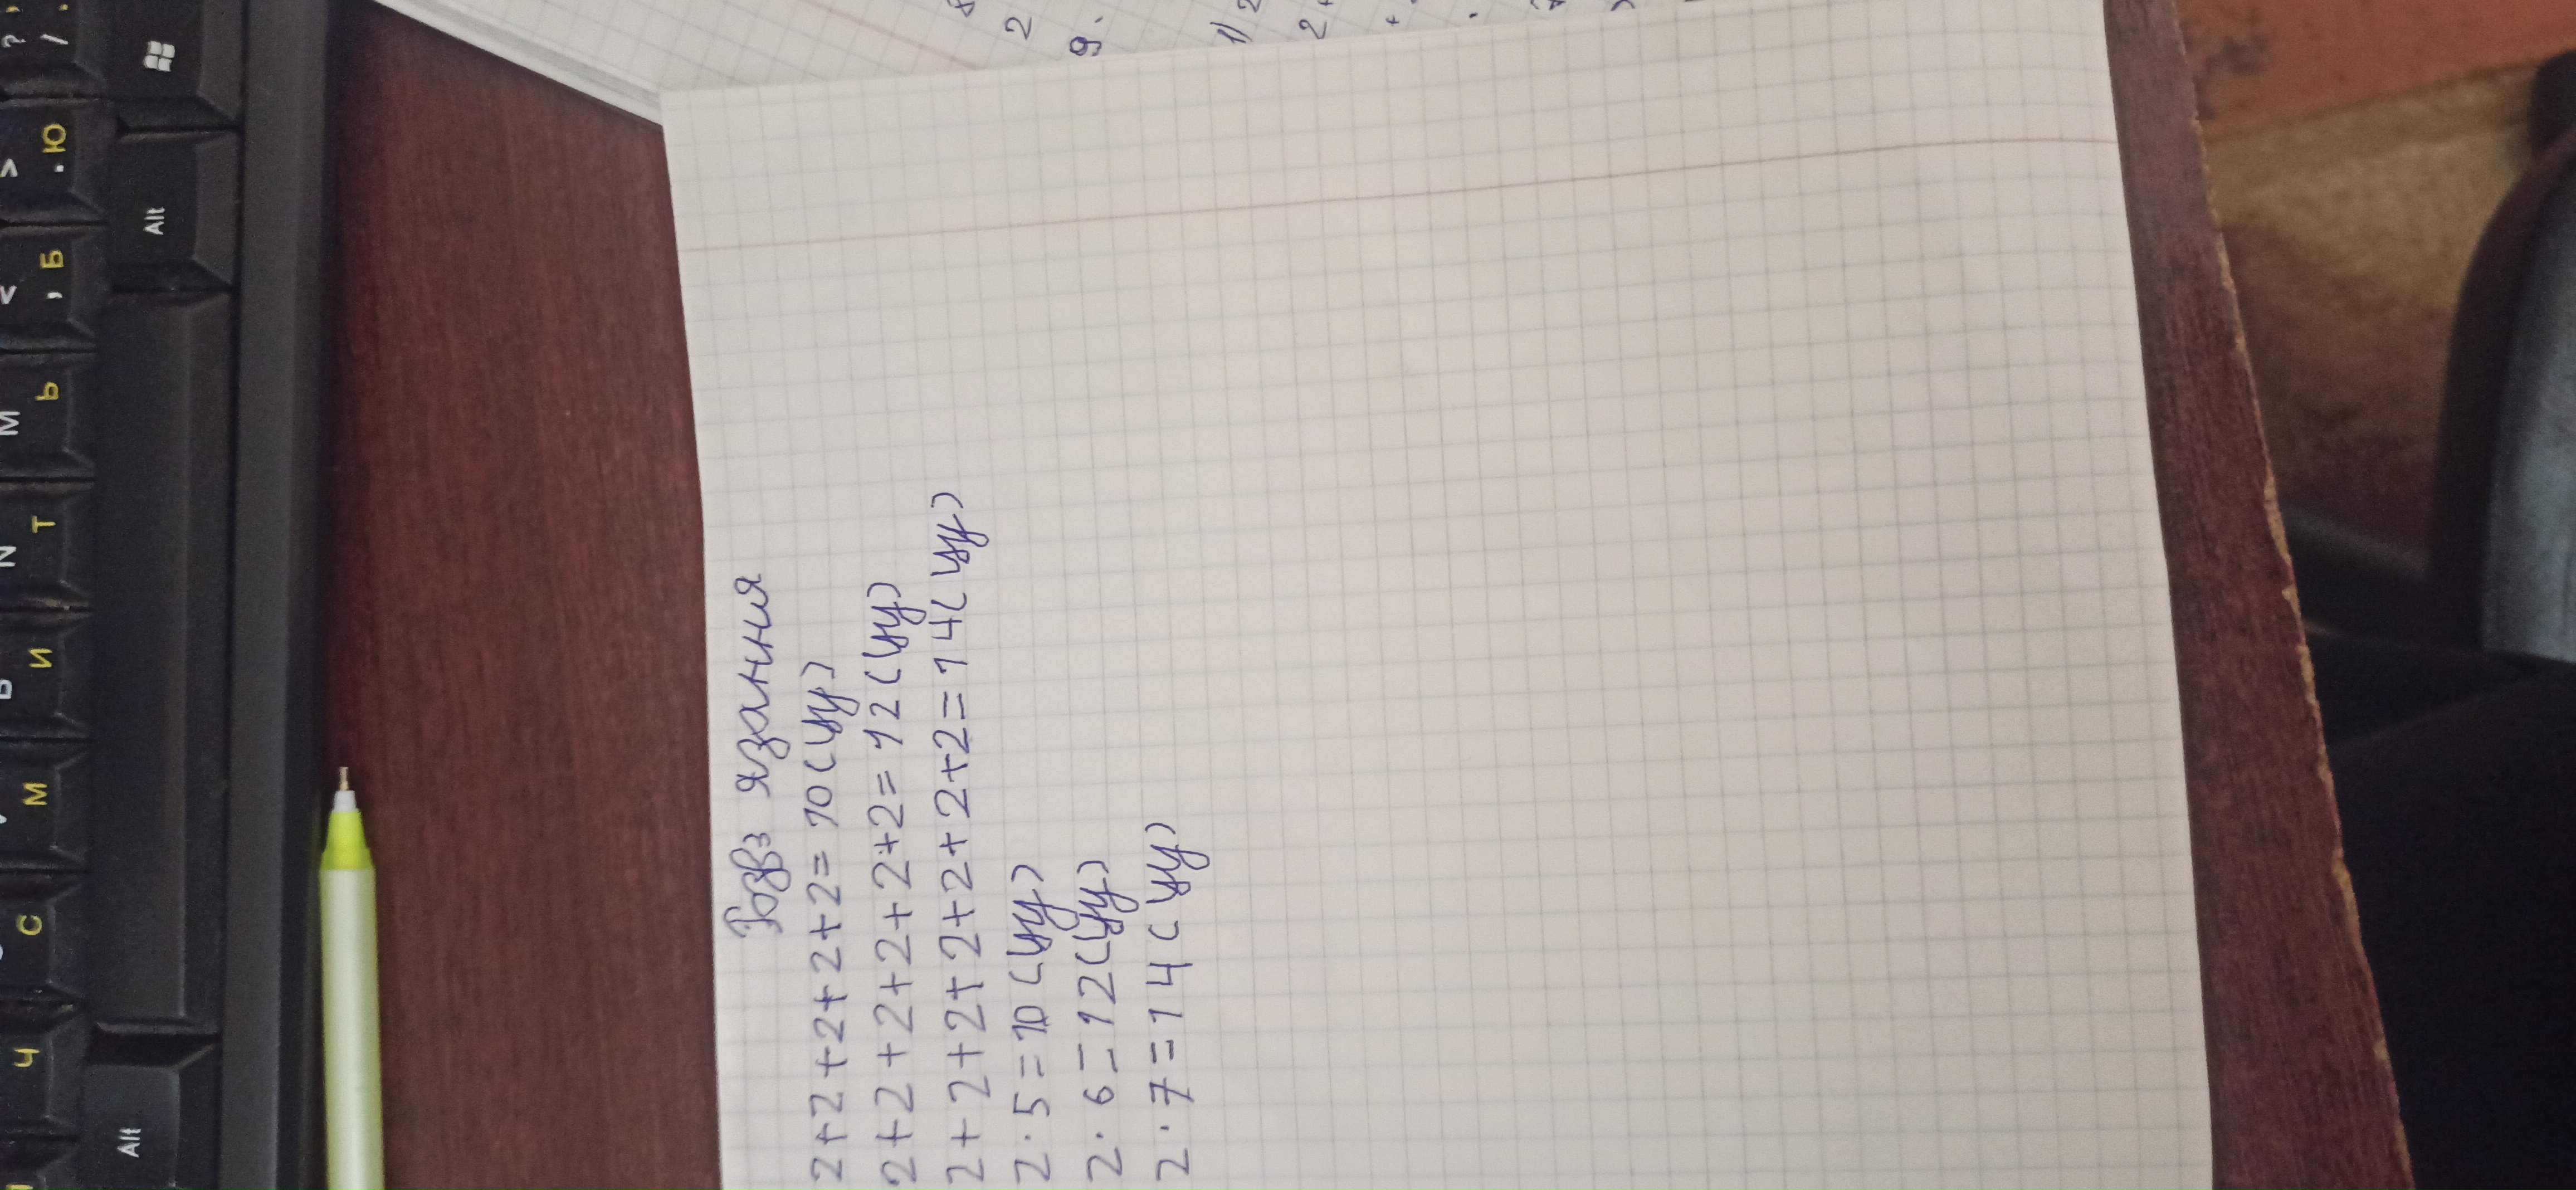 Ч С М И N Т M Ь < , Б > . Ю ? /
Alt Alt
2
9.
1) 2
2+
Розв язання
2+2+2+2+2=10(цу)
2+2+2+2+2+2=12(цу)
2+2+2+2+2+2+2=14(цу)
2·5=10(цу)
2·6=12(цу)
2·7=14(цу)